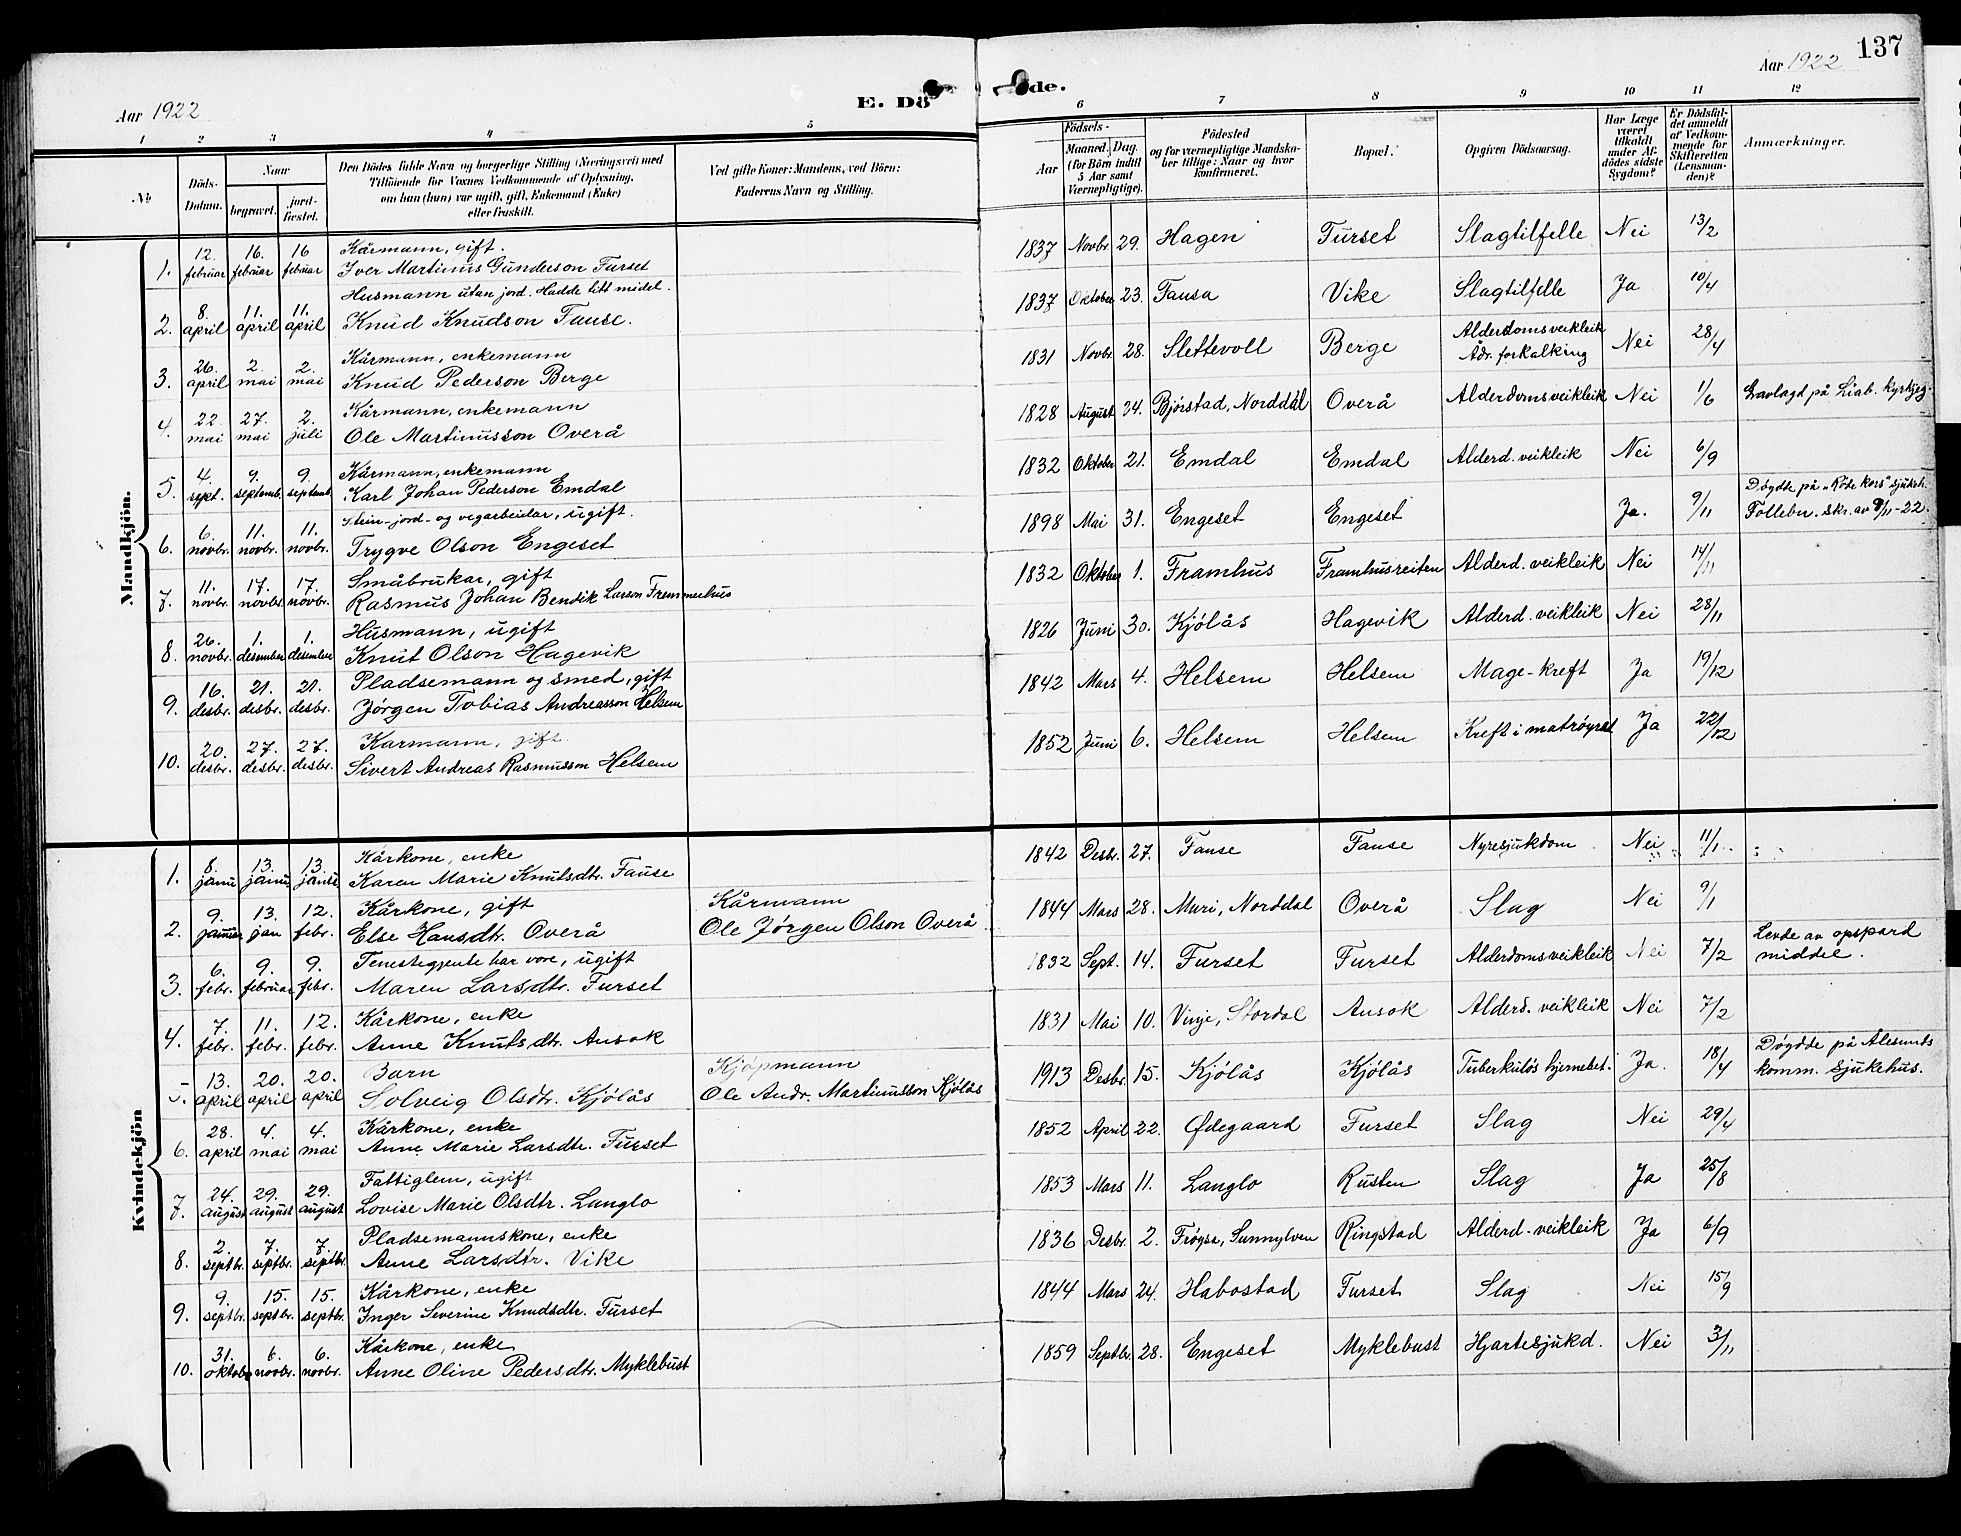 137
Aar 1922
Aar 1922
E. Dö de.
1 2 3 4 5 6 7 8 9 10 11 12
No
Döds-Datum.
Naar
begravet.
jord-fæstet.
Den Dödes fulde Navn og borgerlige Stilling (Næringsvei) med
Tilföiende for Voxnes Vedkommende af Oplysning,
om han (hun) var ugift, gift, Enkemand (Enke)
eller fraskilt.
Ved gifte Koner: Mandens, ved Börn:
Faderens Navn og Stilling.
Födsels-
Aar
Maaned. Dag.
(for Börn indtil
5 Aar samt
Værnepligtige).
Födested
og for værnepligtige Mandska-
ber tillige: Naar og hvor
konfirmeret.
Bopæl.
Opgiven Dödsaarsag.
Har Læge
været
tilkaldt
under Af-
dödes sidste
Sygdom?
Er Dödsfal-
det anmeldt
af Vedkom-
mende for
Skifteretten
(Lensman-
den)?
Anmærkninger.
Mandkjön.
Kårmann, gift.
1. 12. februar 16. februar 16 februar Iver Martinus Gunderson Furset 1837 Novbr. 29. Hagen Furset Slagtilfelle Nei 13/2
Husmann utan jord. Hadde litt midel.
2. 8. april 11. april 11. april Knud Knudson Fause. 1837 Oktober 23. Fausa Vike Slagtilfelle Ja 10/4
Kårmann, enkemann
3. 26. april 2. mai 2. mai Knud Pederson Berge 1831 Novbr. 28. Slettevoll Berge Alderdomsveikleik Ådr. forkalking Nei 28/4
Kårmann, enkemann
4. 22. mai 27. mai 2. juli Ole Martinusson Overå 1828 August 24. Bjørstad, Norddal Overå Alderdomsveikleik Nei 1/6 Gravlagd på Liab. kyrkjeg.
Kårmann, enkemann
5. 4. sept. 9. septemb. 9. septemb. Karl Johan Pederson Emdal 1832 Oktober 21. Emdal Emdal Alderd. veikleik Nei 6/9
Stein-jord- og vegarbeidar, ugift.
6. 6. novbr. 11. novbr. 11. novbr. Trygve Olson Engeset 1898 Mai 31. Engeset Engeset Ja. 9/11 Døydde på "Røde kors" sjukeh. Follebu. skr. av 9/11-22
Småbrukar, gift
7. 11. novbr. 17. novbr. 17. novbr. Rasmus Johan Bendik Larson Fremmerhus 1832 Oktober 1. Framhus Framhusreiten Alderd. veikleik Nei 14/11
Husmann, ugift
8. 26. novbr. 1. desember 1. desember Knut Olson Hagevik 1826 Juni 30. Kjølås Hagevik Alderd. veikleik Nei 28/11
Pladsemann og smed, gift
9. 16. desbr. 21. desbr. 21. desbr. Jørgen Tobias Andreasson Helsem 1842 Mars 4. Helsem Helsem Mage-kreft Ja 19/12
Karmann, gift
10. 20. desbr. 27. desbr. 27. desbr. Sivert Andreas Rasmusson Helsem 1852 Juni 6. Helsem Helsem Kreft i matrøyret Ja 22/12
Kvindekjön
Kårkone, enke
1. 8 janu 13. janu 13. janu Karen Marie Knutsdtr. Fause 1842 Desbr. 27. Fause Fause Nyresjukdom Nei 11/1
Kårkone, gift Kårmann
2. 9. januar 13. jan 12. febr. Else Hansdtr. Overå Ole Jørgen Olson Overå 1844 Mars 28. Muri, Norddal Overå Slag Nei 9/1
Tenestegjente har vore, ugift
3. 6. febr. 9. februar 9. febr. Maren Larsdtr. Furset 1832 Sept. 14. Furset Furset Alderdomsveikleik Nei 7/2 Levde av oppspard middel.
Kårkone, enke
4. 7. febr. 11. febr. 12. febr. Anne Knutsdtr. Ansok 1831 Mai 10. Vinje, Stordal Ansok Alderd. veikleik Nei 7/2
Barn Kjøpmann
5. 13. april 20. april 20. april Solveig Olsdtr. Kjølås Ole Andr. Martinusson Kjølås 1913 Desbr. 15. Kjølås Kjølås Tuberkuløs hjernebet. Ja. 18/4 Døydde på Ålesunds komm. Sjukehus.
Kårkone, enke
6. 28. april 4. mai 4. mai Anne Marie Larsdtr. Furset 1852 April 22. Ødegaard Furset Slag Nei 29/4
Fattiglem, ugift
7. 24. august 29. august 29. august Lovise Marie Olsdtr. Langlo 1853 Mars 11. Langlo Rusten Slag Ja 25/8
Pladsemannskone, enke
8. 2. septbr. 7. septbr. 7. septbr. Anne Larsdtr. Vike 1836 Desbr. 2. Frøysa, Sunnylven Ringstad Alderd.-veikleik Ja 6/9
Kårkone, enke
9. 9. septbr. 15. septbr. 15. septbr. Inger Severine Knudsdtr. Furset 1844 Mars 24. Habostad Furset Slag Nei 15/9
Kårkone, enke
10. 31. oktober 6. novbr. 6. novbr. Anne Oline Pedersdtr. Myklebust 1859 Septbr. 28. Engeset Myklebust Hjartesjukd. Nei 3/11